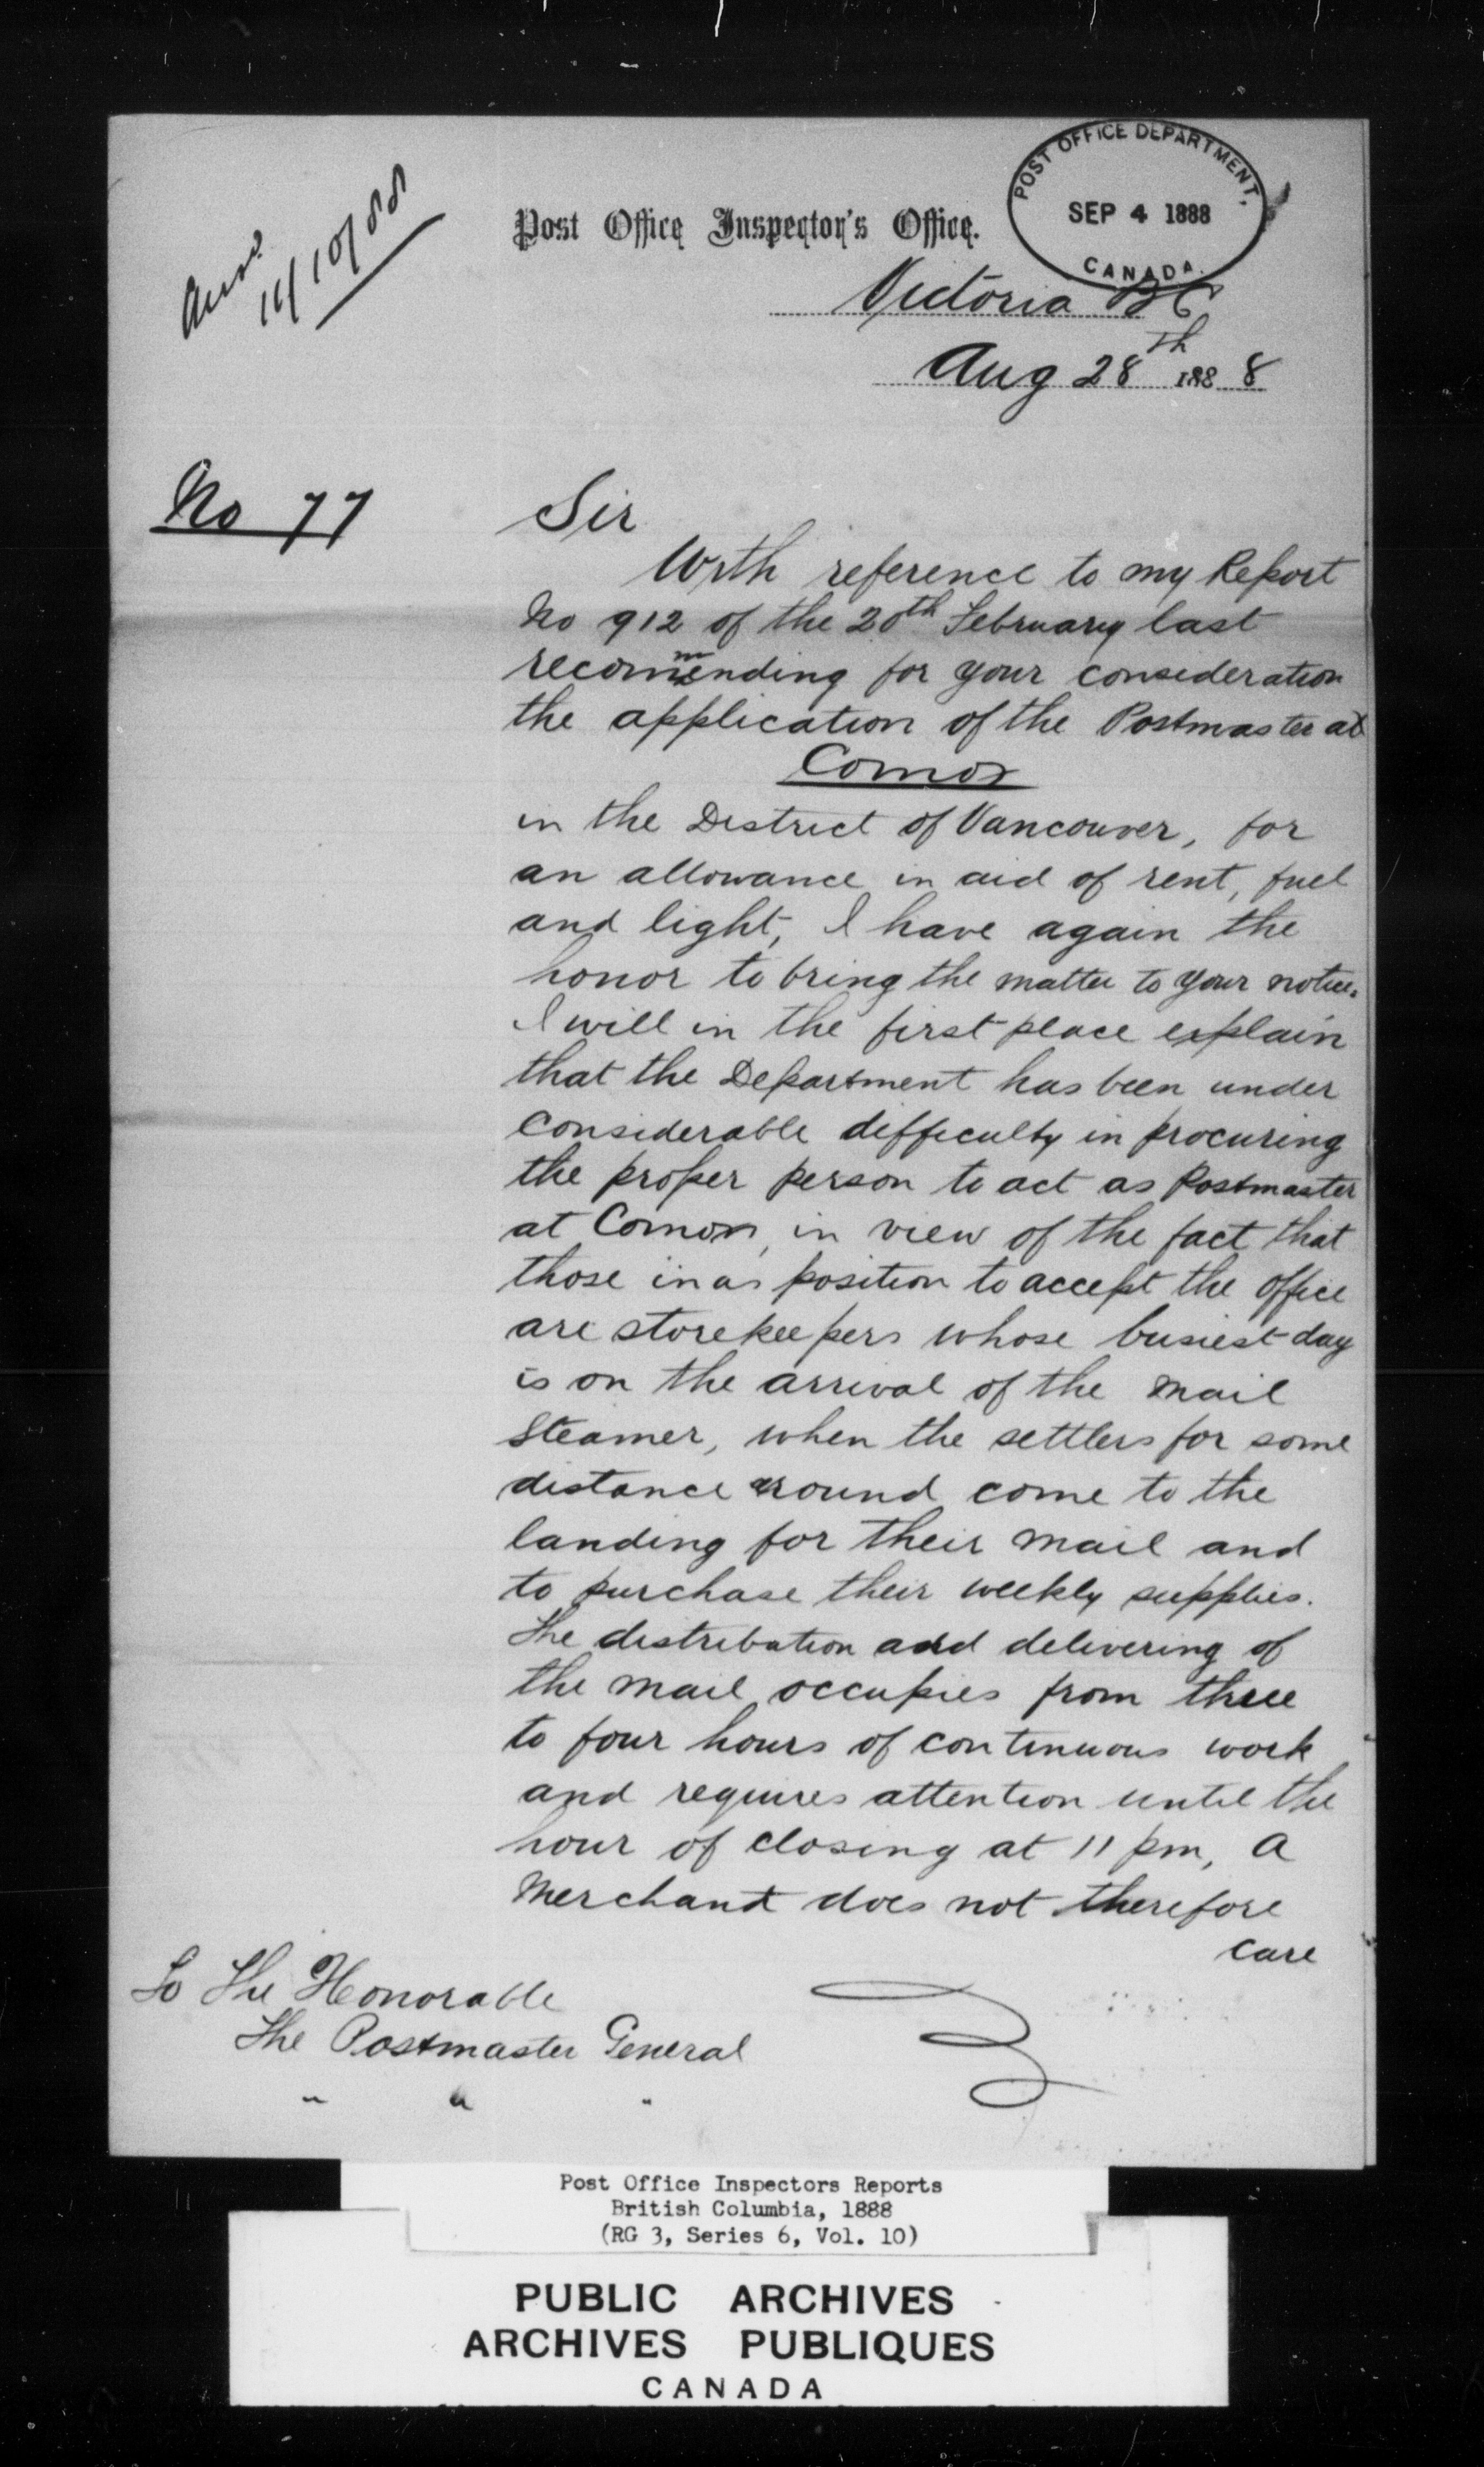 Ansd
16/10/88
Post Office Inspector's Office.
POST OFFICE DEPARTMENT,
SEP 4 1888
CANADA.
Victoria BC
Aug 28th 1888
No 77
Sir
With reference to my Report
No 912 of the 20th February last
recommending for your consideration
the application of the Postmaster at
Comox
in the District of Vancouver, for
an allowance in aid of rent, fuel
and light, I have again the
honor to bring the matter to your notice.
I will in the first place explain
that the Department has been under
considerable difficulty in procuring
the proper person to act as Postmaster
at Comox, in view of the fact that
those in a position to accept the office
are storekeepers whose busiest day
is on the arrival of the mail
Steamer, when the settlers for some
distance around come to the
landing for their mail and
to purchase their weekly supplies.
The distribution and delivering of
the mail occupies from three
to four hours of continuous work
and requires attention until the
hour of closing at 11 pm, A
Merchant does not therefore
care
To The Honorable
The Postmaster General
" " "
Post Office Inspectors Reports
British Columbia, 1888
(RG 3, Series 6, Vol. 10)
PUBLIC ARCHIVES
ARCHIVES PUBLIQUES
CANADA